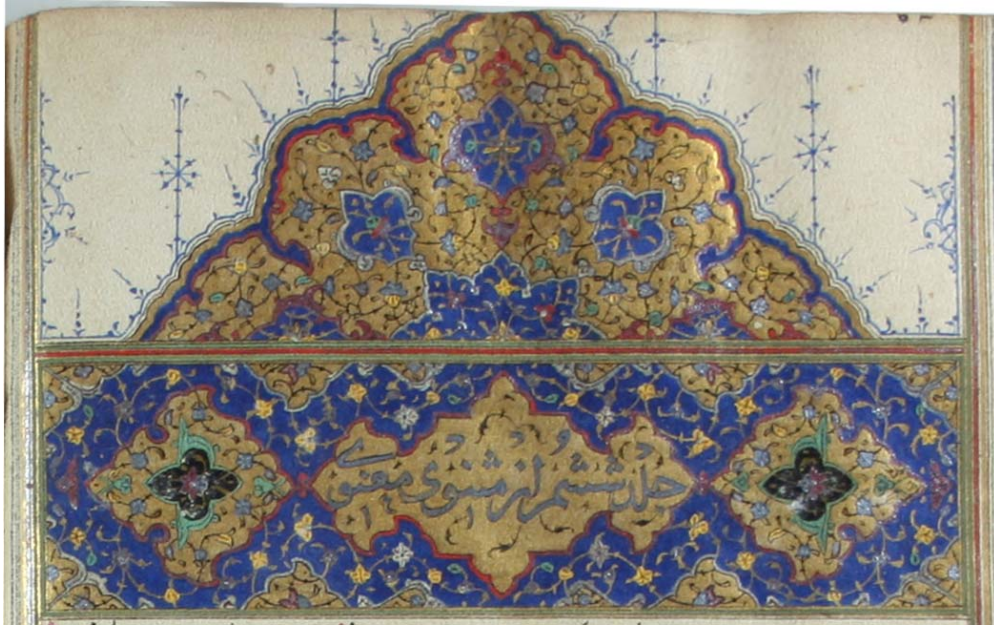 جلد ششم از مثنوی معنوی